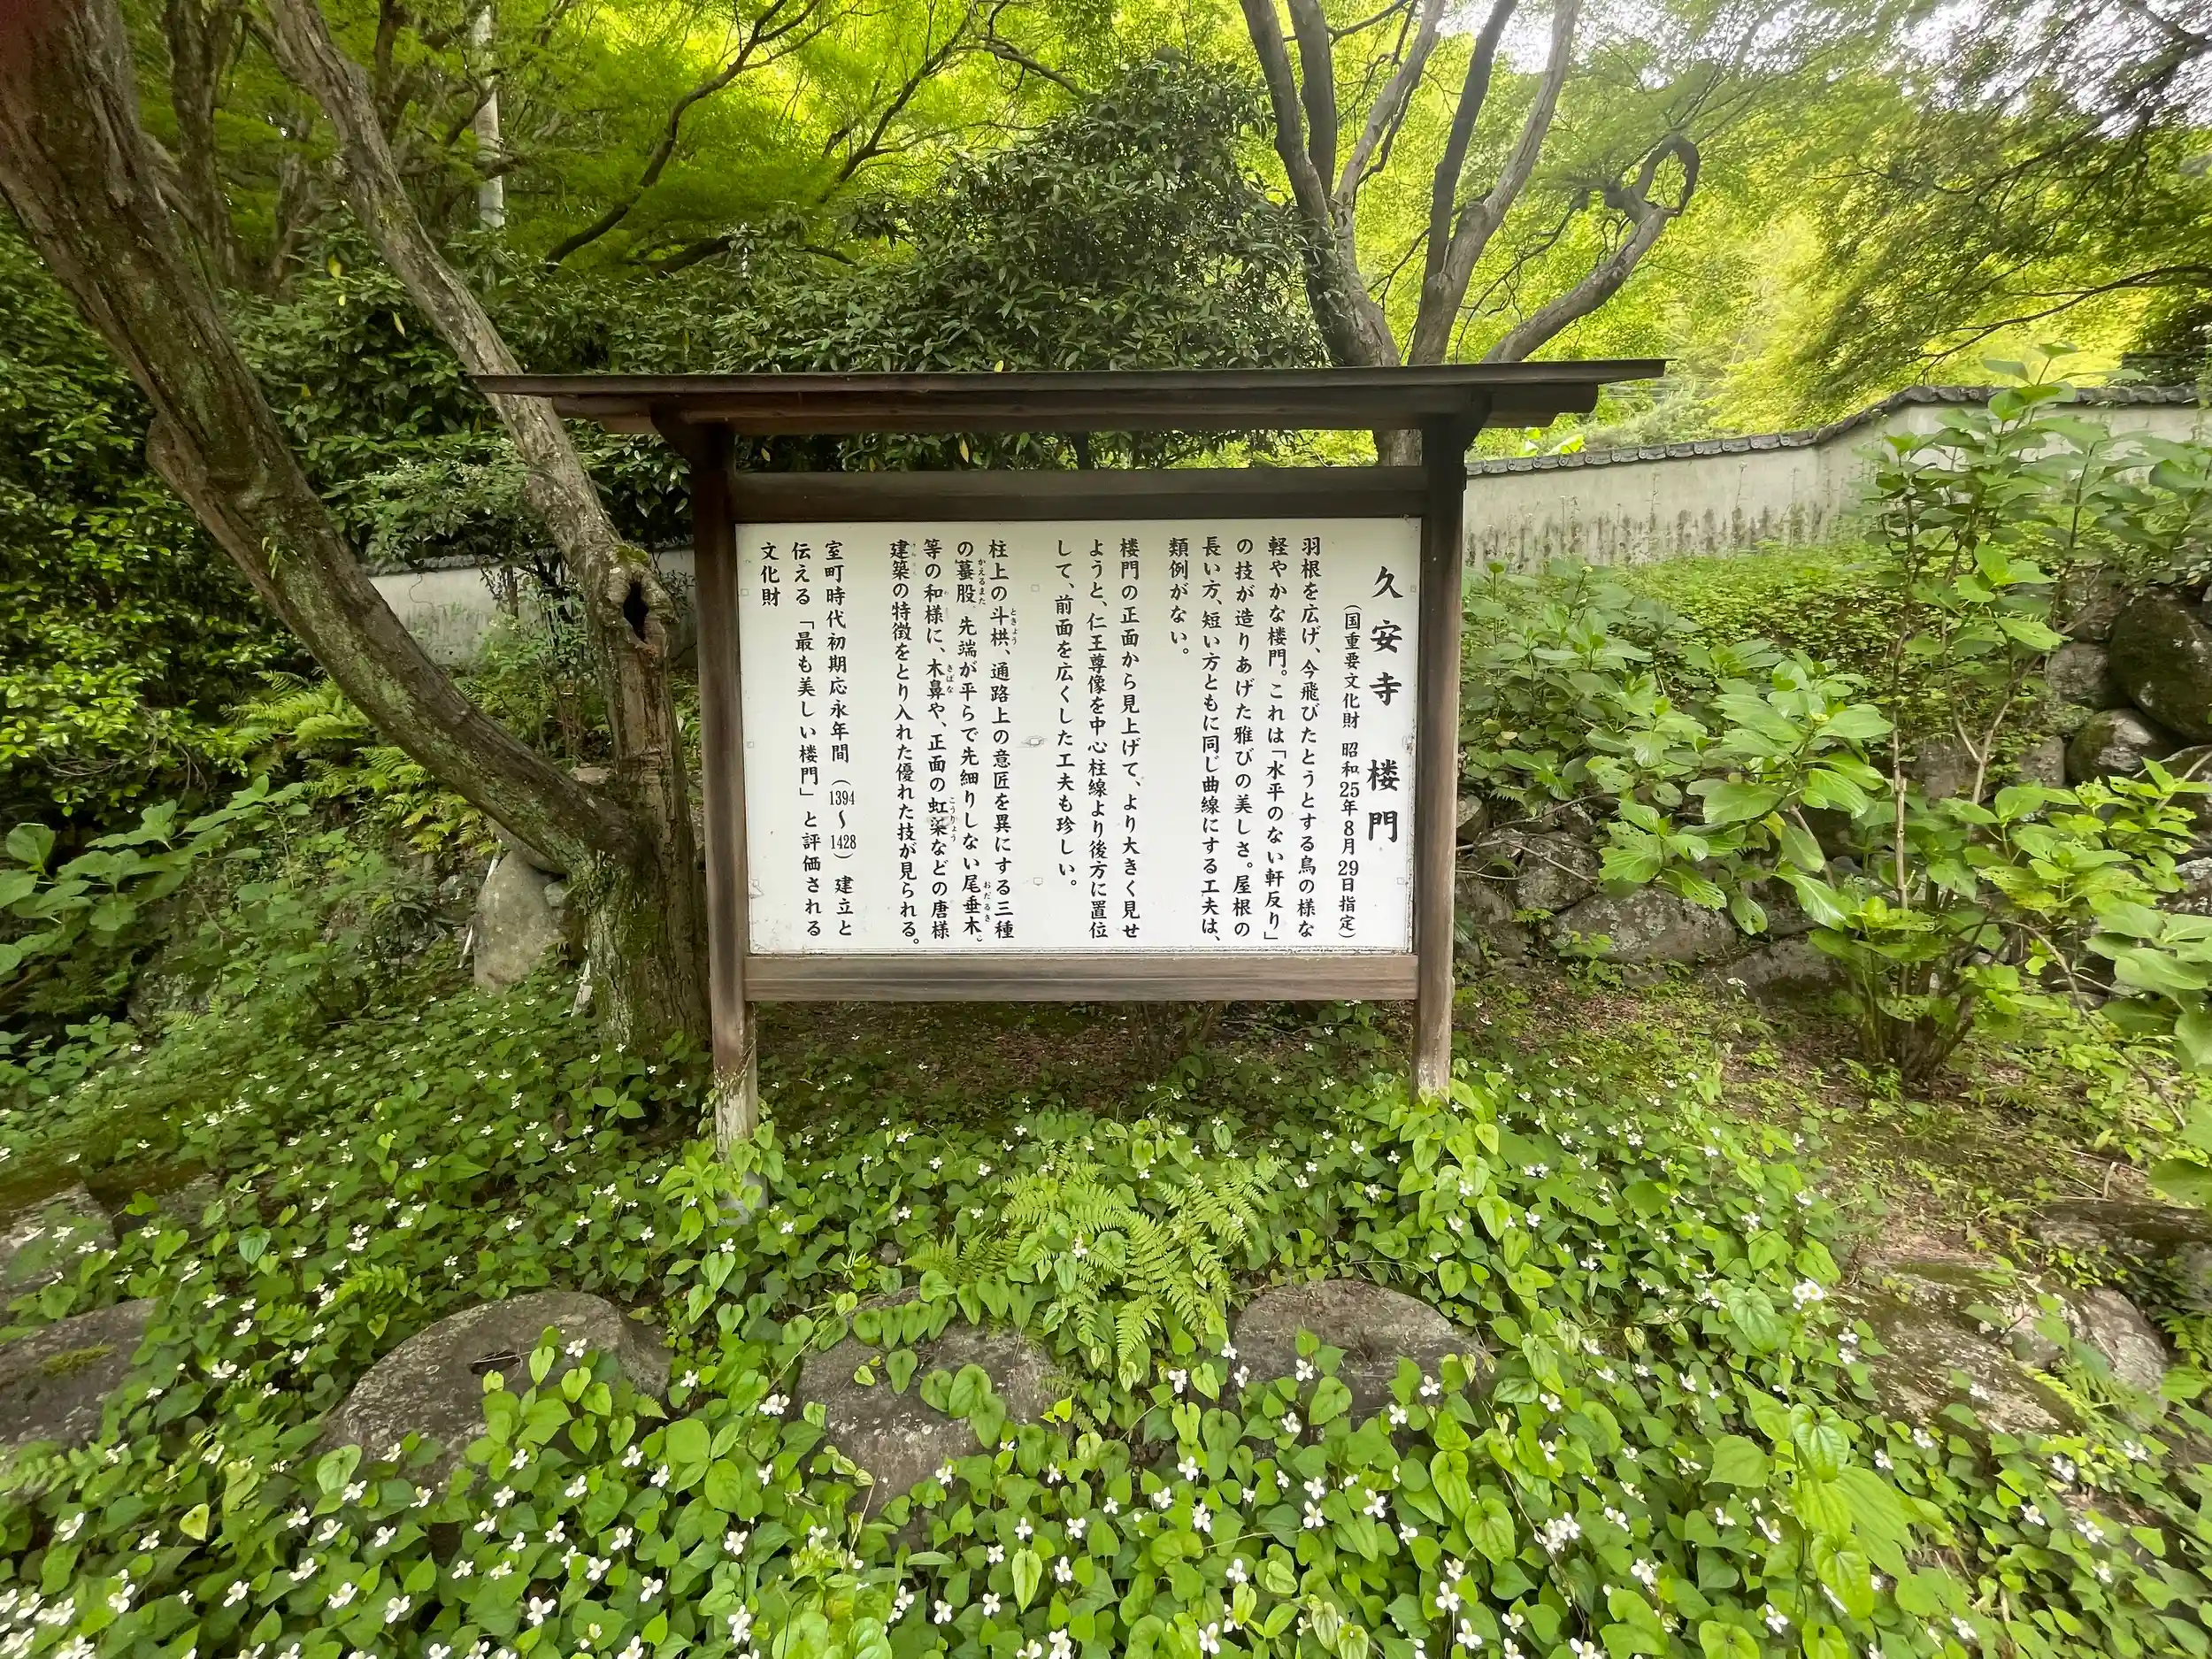 久安寺 楼門
（国重要文化財 昭和25年8月29日指定）
羽根を広げ、今飛びたとうとする鳥の様な
軽やかな楼門。これは「水平のない軒反り」
の技が造りあげた雅びの美しさ。屋根の
長い方、短い方ともに同じ曲線にする工夫は、
類例がない。
楼門の正面から見上げて、より大きく見せ
ようと、仁王尊像を中心柱線より後方に置位
して、前面を広くした工夫も珍しい。
柱上の斗栱、通路上の意匠を異にする三種
の蟇股、先端が平らで先細りしない尾垂木、
等の和様に、木鼻や、正面の虹梁などの唐様
建築の特徴をとり入れた優れた技が見られる。
室町時代初期応永年間（1394～1428）建立と
伝える「最も美しい楼門」と評価される
文化財